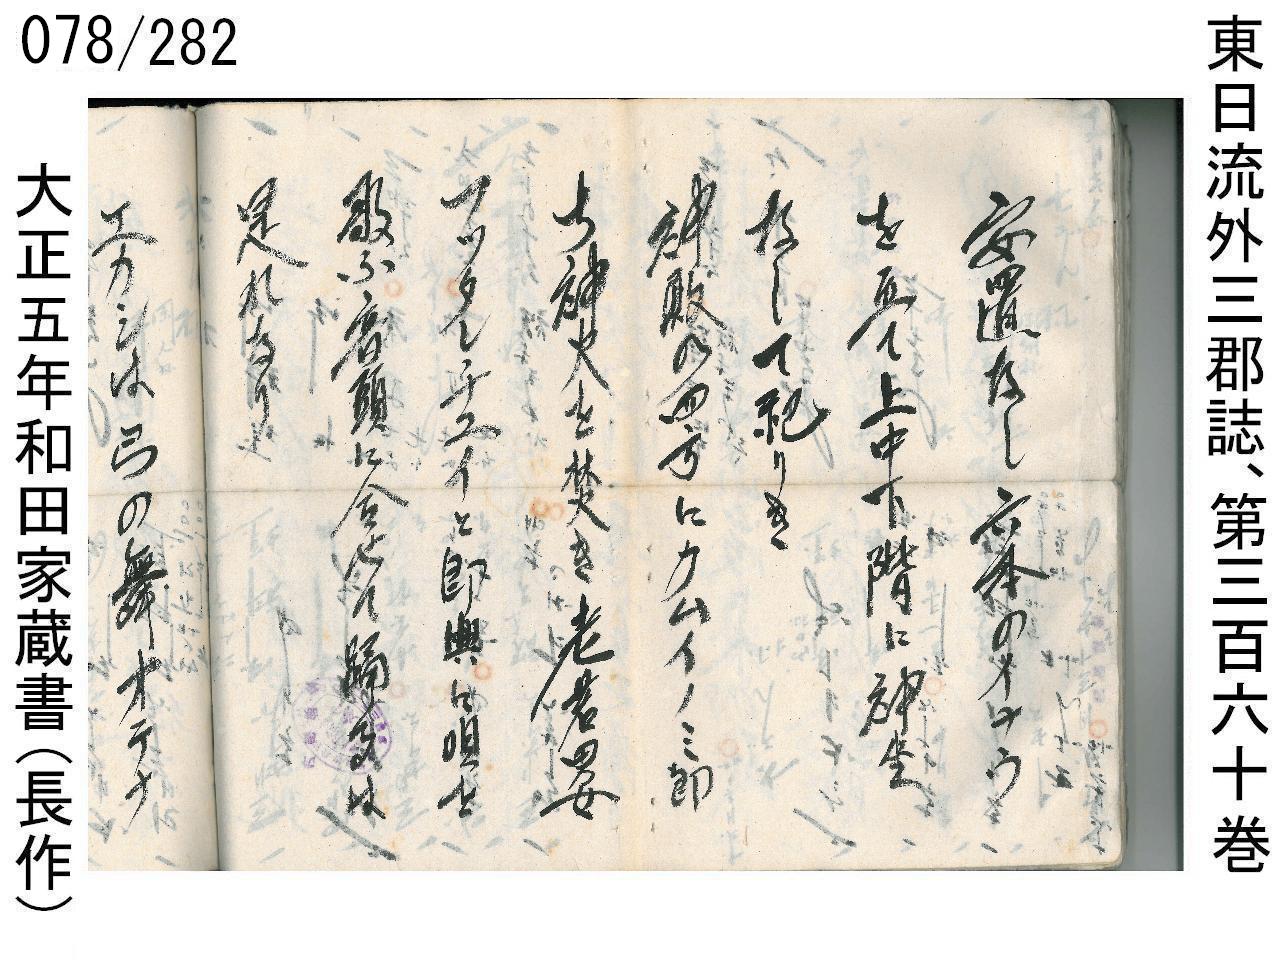 078/282
東日流外三郡誌、第三百六十巻
安置なし六本の
を立て上中下階に神坐
なして祀りき
神殿の四方にカムイノミ即
ち神火を焚き老若男女
フッタレチュイと即興に唄を
敲ふ音頭に合せて踊るは
是れなり
エカシは弓の舞オテナ
大正五年和田家蔵書（長作）